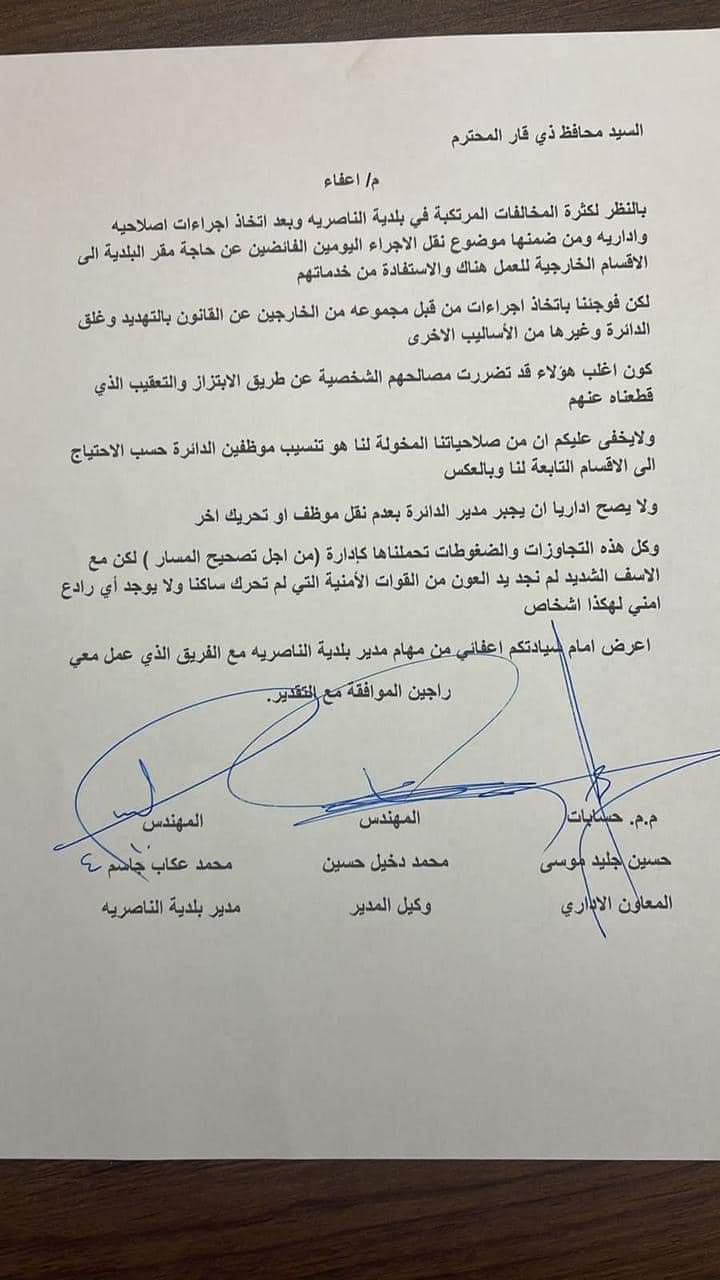 السيد محافظ ذي قار المحترم
م/ اعفاء
بالنظر لكثرة المخالفات المرتكبة في بلدية الناصريه وبعد اتخاذ اجراءات اصلاحيه
واداريه ومن ضمنها موضوع نقل الاجراء اليومين الفائضين عن حاجة مقر البلدية الى
الاقسام الخارجية للعمل هناك والاستفادة من خدماتهم
لكن فوجئنا باتخاذ اجراءات من قبل مجموعه من الخارجين عن القانون بالتهديد وغلق
الدائرة وغيرها من الأساليب الاخرى
كون اغلب هؤلاء قد تضررت مصالحهم الشخصية عن طريق الابتزاز والتعقيب الذي
قطعناه عنهم
ولايخفى عليكم ان من صلاحياتنا المخولة لنا هو تنسيب موظفين الدائرة حسب الاحتياج
الى الاقسام التابعة لنا وبالعكس
ولا يصح اداريا ان يجبر مدير الدائرة بعدم نقل موظف او تحريك اخر
وكل هذه التجاوزات والضغوطات تحملناها كإدارة (من اجل تصحيح المسار ) لكن مع
الاسف الشديد لم نجد يد العون من القوات الأمنية التي لم تحرك ساكنا ولا يوجد أي رادع
امني لهكذا اشخاص
اعرض امام سيادتكم اعفائي من مهام مدير بلدية الناصريه مع الفريق الذي عمل معي
راجين الموافقة مع التقدير.
م.م. حسابات المهندس المهندس
حسين جليد موسى محمد دخيل حسين محمد عكاب جاسم
المعاون الاداري وكيل المدير مدير بلدية الناصريه